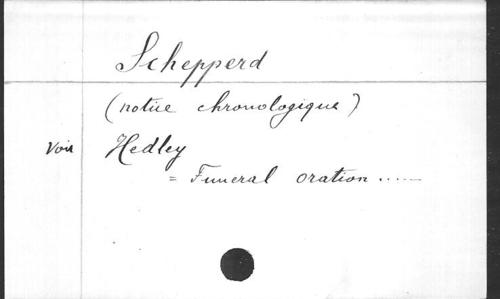 Schepperd
(notice chronologique)
Voir Hedley
= Funeral oration ......